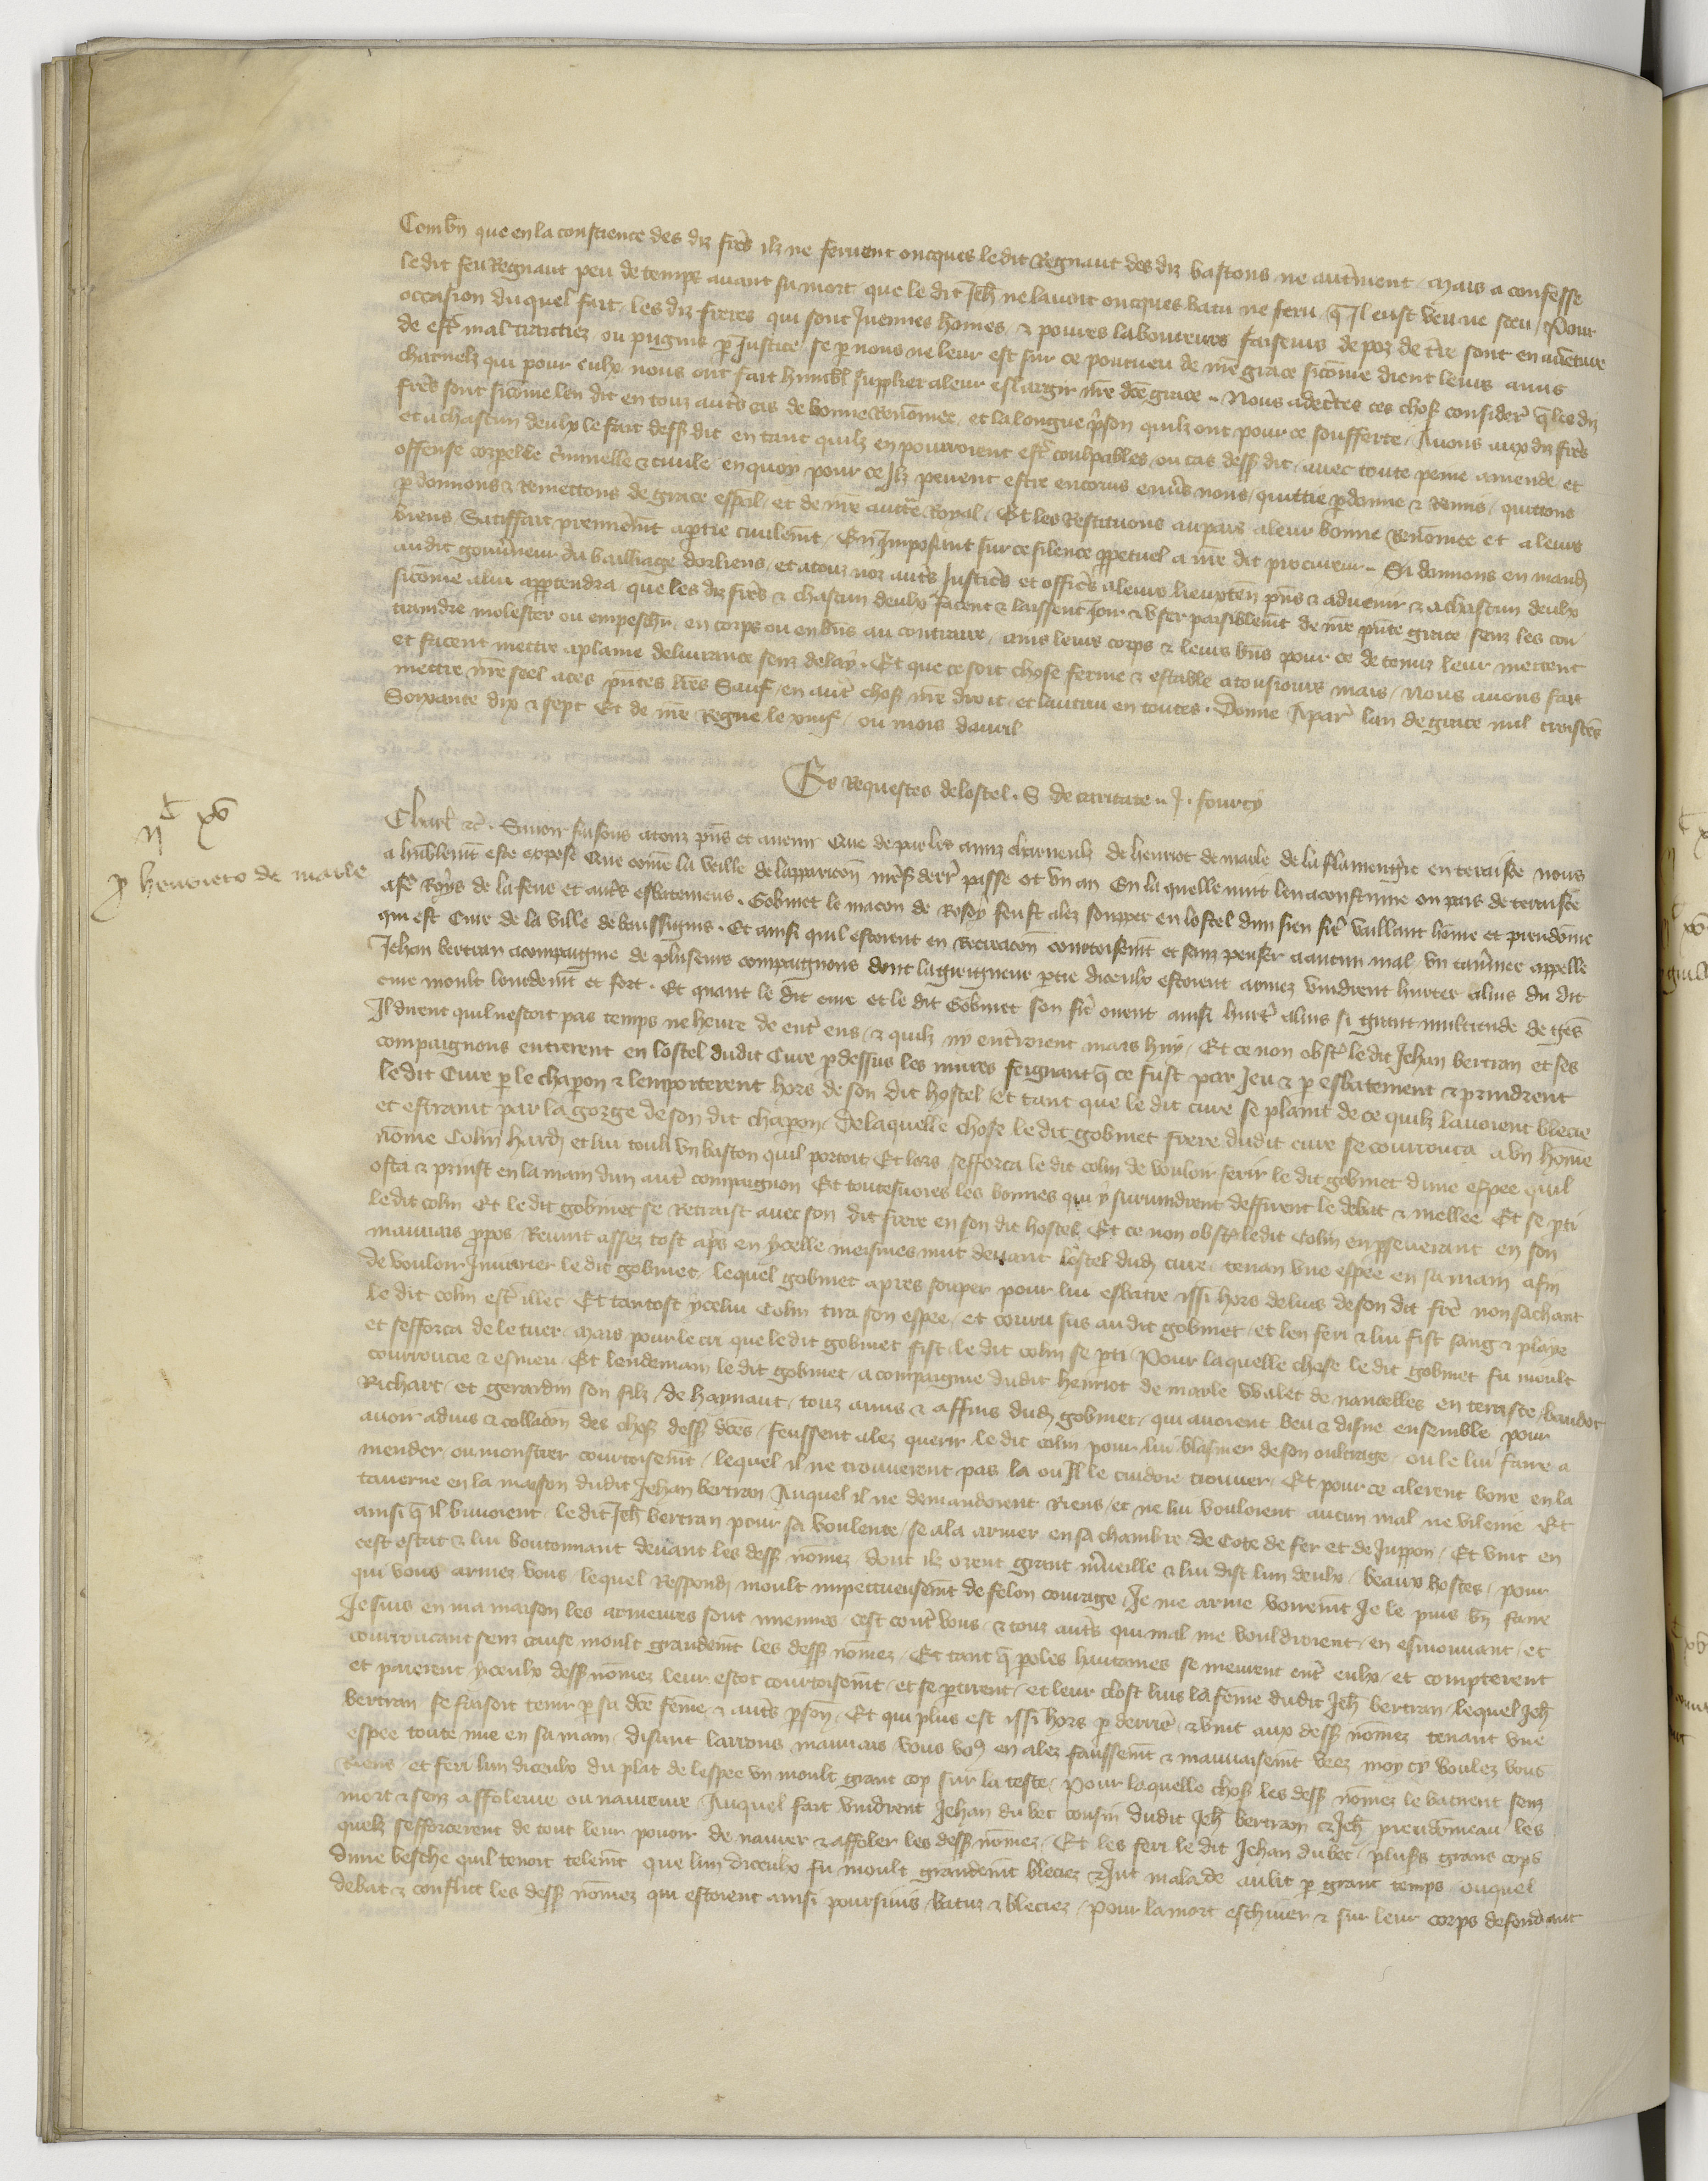 Combn que en la conscience des diz freres ilz ne ferirent oncques ledit Regnaut des diz bastons ne autrement / Mais a confesse
ledit feu Regnaut peu de temps avant sa mort que le dit Jeh ne lavoit oncques batu ne feru q Il eust veu ne sceu / Pour
occasion duquel fait les diz freres qui sont Juennes homes & povres laboureurs faiseurs de poz de tre sont en aventure
de estre mal traictiez ou pugniz p Justice se p nous ne leur est sur ce pourveu de nre grace sicome dient leurs amis
charnelz qui pour eulx nous ont fait humbl supplier a leur eslargir nre dce grace .. Nous adectes ces chos consider q les diz
freres sont sicome len dit en touz autres cas de bonne renomee et la longue prison quilz ont pour ce soufferte / Avons aux diz freres
et a chascun deulx le fait dess dit en tant quilz en pourroient estre coulpables ou cas dess dit avec toute peine amende et
offense corpelle criminelle & civile en quoy pour ce Ilz pevent estre encorus envers nous quittie pdonne & Remis quittons
pdonnons & remettons de grace espal et de nre aucte Royal / Et les Restituons au pais a leur bonne Renomee et a leurs
biens Satiffait premierement a ptie civilement / En Imposant sur ce silence ppetuel a nre dit procureur .. Si donnons en mand
audit gouverneur du bailliage dorliens et a touz noz autres Justiciers et officiers a leurs lieuxten pns & advenir & a chascun deulx
sicome a lui apptendra que les diz freres & chascun deulx facent & laissent Joir & user paisiblement de nre pnte grace senz les con
traindre molester ou empescher en corps ou en biens au contraire ains leurs corps & leurs biens pour ce detenuz leur mettent
et facent mettre a plaine delivrance senz delay . Et que ce soit chose ferme & estable a tousiours mais / Nous avons fait
mettre nre seel a ces pntes lres Sauf en autres chos nre droit et lautrui en toutes . Donne A paris lan de grace mil troiscens
Soixante dix & sept Et de nre Regne le xiiij ou mois davril
Es Requestes de lostel . S de caritate .. J . fourcy
ij c xv
p henrieto de marle
Charl &c . Savoir faisons a touz pns et avenir Que de par les amiz charneulz de henriot de marle de la flamengrie en teraisse nous
a humblement este expose Que come la veille de lapparicon nres derr passe ot un an En la quelle nuit len acoustume ou pais de teraisse
a fe Roys de la feve et autres esbatemens . Gobinet le macon de Rosoy feust alez soupper en lostel dun sien frere vaillant home et preudome
qui est Cure de la ville de baussigins . Et ainsi quil estoient en Recreacon courtoisement et sanz penser a aucun mal un tavernier appelle
Jehan bertran acompaigne de plusieurs compaignons dont la greigneur ptie diceulx estoient armez vindrent hurter a luis du dit
cure moult lourdement et fort . Et quant le dit cure et le dit Gobinet son frere oirent ainsi hurter a luis si grant multitude de gens
Il dirent quil nestoit pas temps ne heure de entrer ens & quilz ny entreroient mais huy / Et ce non obst ledit Jehan bertran et ses
compaignons entrerent en lostel dudit Cure pdessus les murs feignant q ce fust par Jeu & p esbatement & prindrent
ledit Cure p le chapon & lemporterent hors de son dit hostel Et tant que le dit cure se plaint de ce quilz lavoient blecie
et estraint par la gorge de son dit chapon / De laquelle chose le dit gobinet frere dudit cure se courrouca a un home
nome Colin hard et lui toult un baston quil portoit Et lors sefforca le dit colin de vouloir ferir le dit gobinet dune espee quil
osta & prinst en la main dun autre compaignon Et toutesvoies les bonnes qui y survindrent deffirent le debat & mellee Et se pti
ledit colin Et le dit gobinet se Retraist avec son dit frere en son dit hostel Et ce non obst ledit Colin en pseverant en son
mauvais ppos / Revint assez tost apres en ycelle meismes nuit devant lostel dud cure tenan une espee en sa main afin
de vouloir Iniurier le dit gobinet / lequel gobinet apres souper pour lui esbatre issi hors de luis de son dit frere non sachant
le dit colin estre illec Et tantost ycelui Colin tira son espee et couru sus au dit gobinet / et len feri & lui fist sang & playe
et sefforca de le tuer / mais pour le cri que le dit gobinet fist le dit colin se pti / Pour laquelle chose le dit gobinet fu moult
courroucie & esmeu / Et lendemain le dit gobinet acompaigne dudit henriot de marle Walet de nancelles en teraisse baudot
Richart et gerardin son filz de haynaut touz amis & affins dud gobinet qui avoient beu & disne ensemble pour
avoir advis & collacon des chos dess dces feussent alez querir le dit colin pour lui blasmer de son oultrage ou le lui faire a
mender ou monstrer courtoisement / lequel il ne trouverent pas la ou Il le cuidoie trouver / Et pour ce alerent boire en la
taverne en la maison dudit Jehan bertran / Auquel il ne demandoient Riens et ne lui vouloient aucun mal ne vilenie Et
ainsi q il buvoient le dit Jeh bertran pour sa voulente se ala armer en sa chambre de Cote de fer et de Juppon / Et vint en
cest estat & lui boutonnant devant les dess nomez dont ilz orent grant merveille & lui dist lun deulx / beaux hostes / pour
qui vous armez vous lequel Respond moult impetueusement de felon courage / Je me arme voirement Je le puis bn faire
Je suis en ma maison les armeures sont miennes cest contre vous & touz autres qui mal me vouldroient en esmouvant et
courroucant senz cause moult grandement les dess nomez / Et tant q poles haultaines se meurent entre eulx et compterent
et paierent yceulx dess nomez leur escot courtoisement et se ptirent et leur clost luis la feme dudit Jeh bertran lequel Jeh
bertran se faisoit tenir p sa dce feme & autres pson / Et qui plus est issi hors p derriere & vint aux dess nomez tenant une
espee toute nue en sa main disant larrons mauvais vous vous en alez faussement & mauvaisement veez moy cy voulez vous
Riens et feri lun diceulx du plat de lespee un moult grant cop sur la teste / Pour laquelle chos les dess nomez le batirent senz
mort & senz affoleure ou navreure / Auquel fait vindrent Jehan du bec cousin dudit Jeh bertran & Jeh preudomeau les
quelz sefforcerent de tout leur povoir de navrer & affoler les dess nomez / Et les feri le dit Jehan du bec plus grans cops
dune besche quil tenoit telement que lun diceulx fu moult grandement bleciez & Jut malade au lit p grant temps ouquel
debat & conflict les dess nomez qui estoient ainsi poursuis batuz & bleciez pour la mort eschiver & sur leur corps defendant